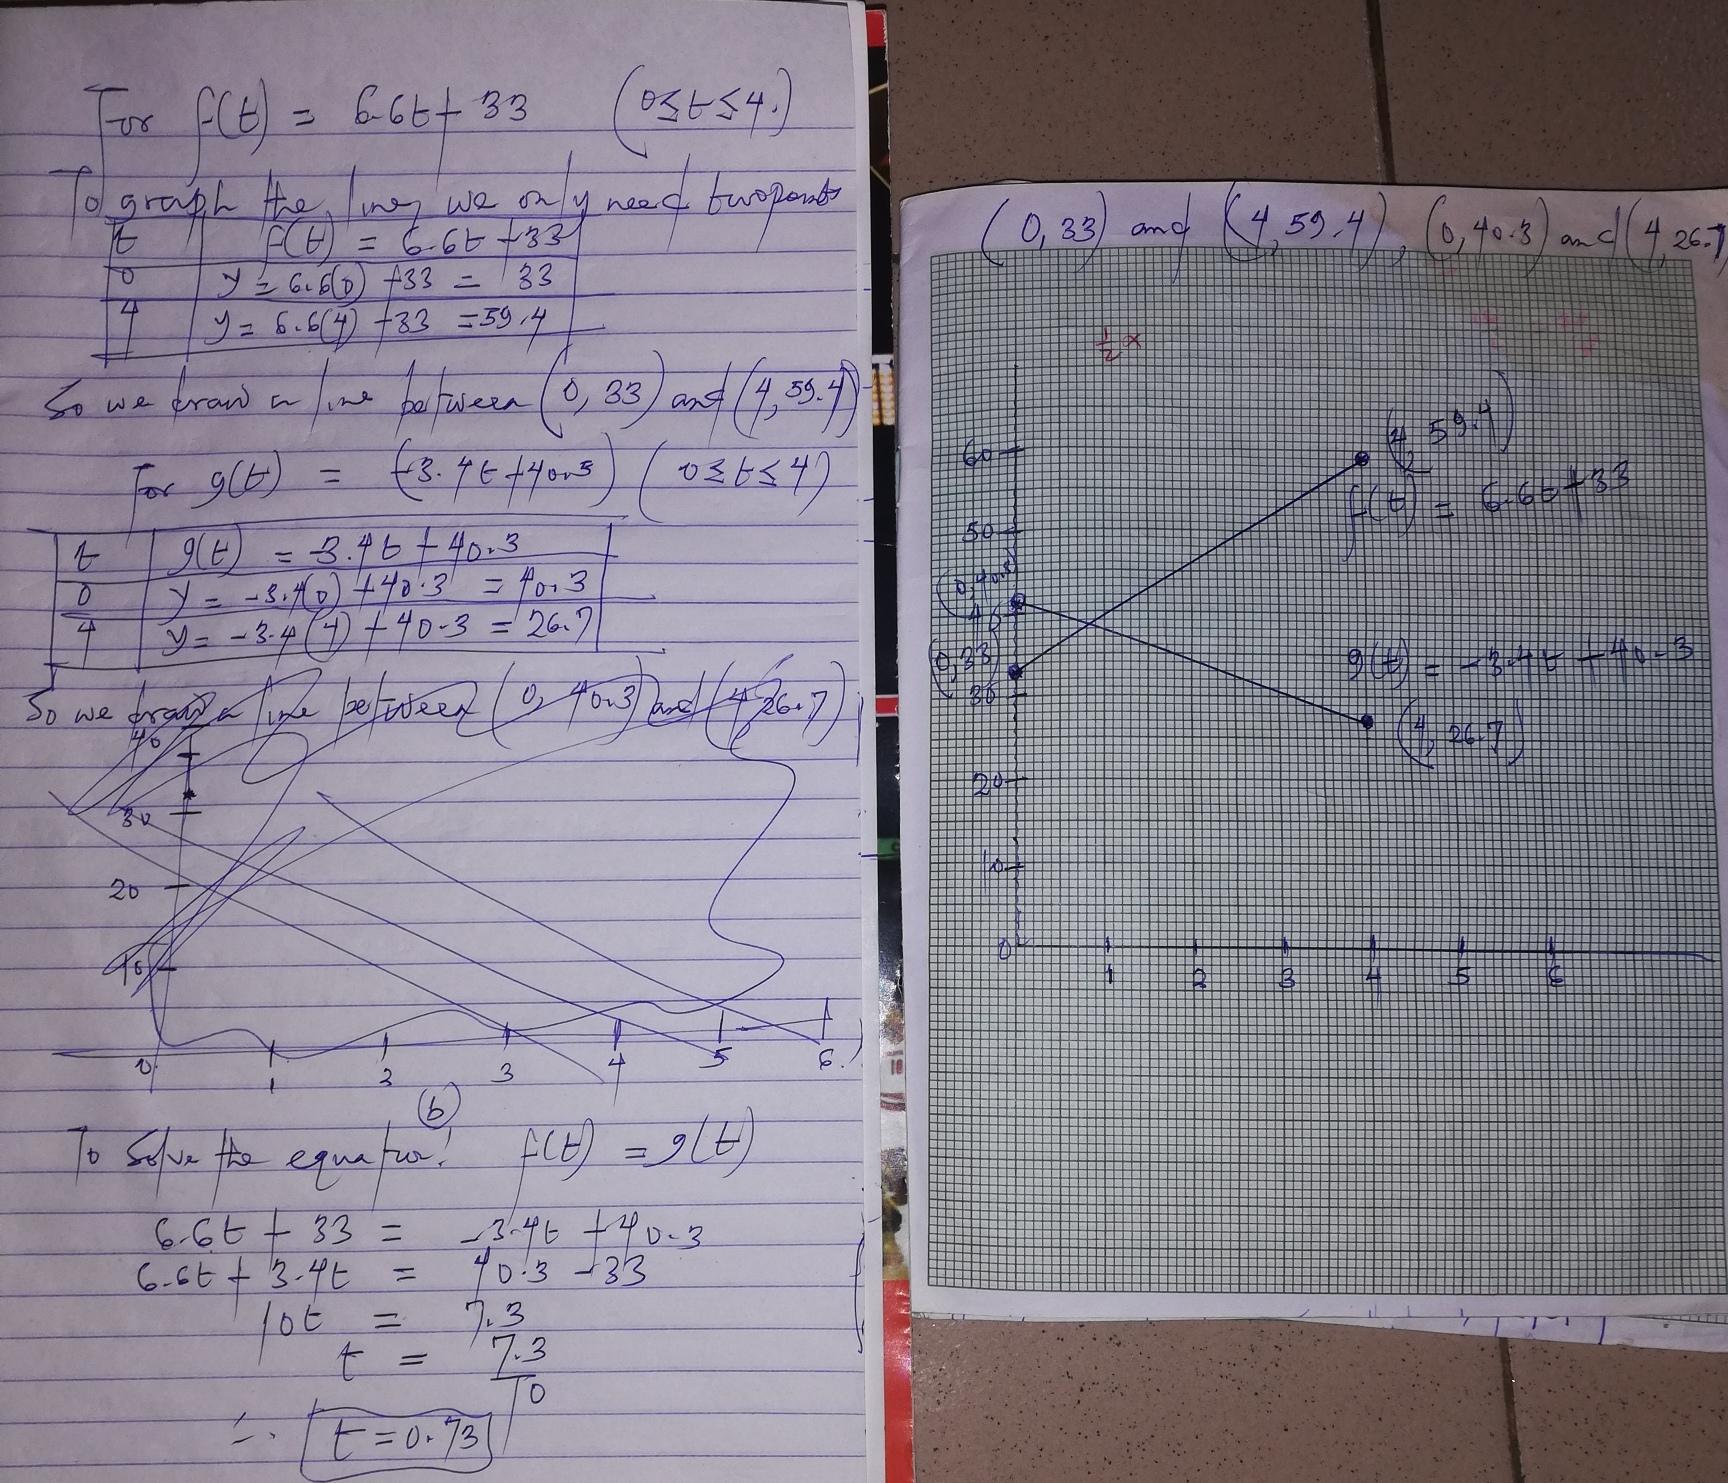 For f(t) = 6.6t + 33 (0≤t≤4.)
To graph the line, we only need two points
t f(t) = 6.6t +33
0 y = 6.6(0) +33 = 33
4 y = 6.6(4) +33 =59.4
So we draw a line between (0, 33) and (4, 59.4)
For g(t) = (-3.4t+40.3) (0≤t≤4)
t g(t) = -3.4t + 40.3
0 y = -3.4(0) +40.3 = 40.3
4 y= -3.4(4) +40.3 = 26.7
So we draw a line between (0, 40.3) and (4, 26.7)
40
30
20
10
0 1 2 3 4 5 6
(b)
To Solve the equation: f(t) = g(t)
6.6t + 33 = -3.4t +40.3
6.6t + 3.4t = 40.3 -33
10t = 7.3
t = 7.3
10
∴ t = 0.73
(0, 33) and (4, 59.4), (0, 40.3) and (4, 26.7
½x
60
(4, 59.4)
f(t) = 6.6t+33
50
(0, 40.3)
40
(0, 33)
g(t) = -3.4t +40.3
30
(4, 26.7)
20
10
0
1 2 3 4 5 6